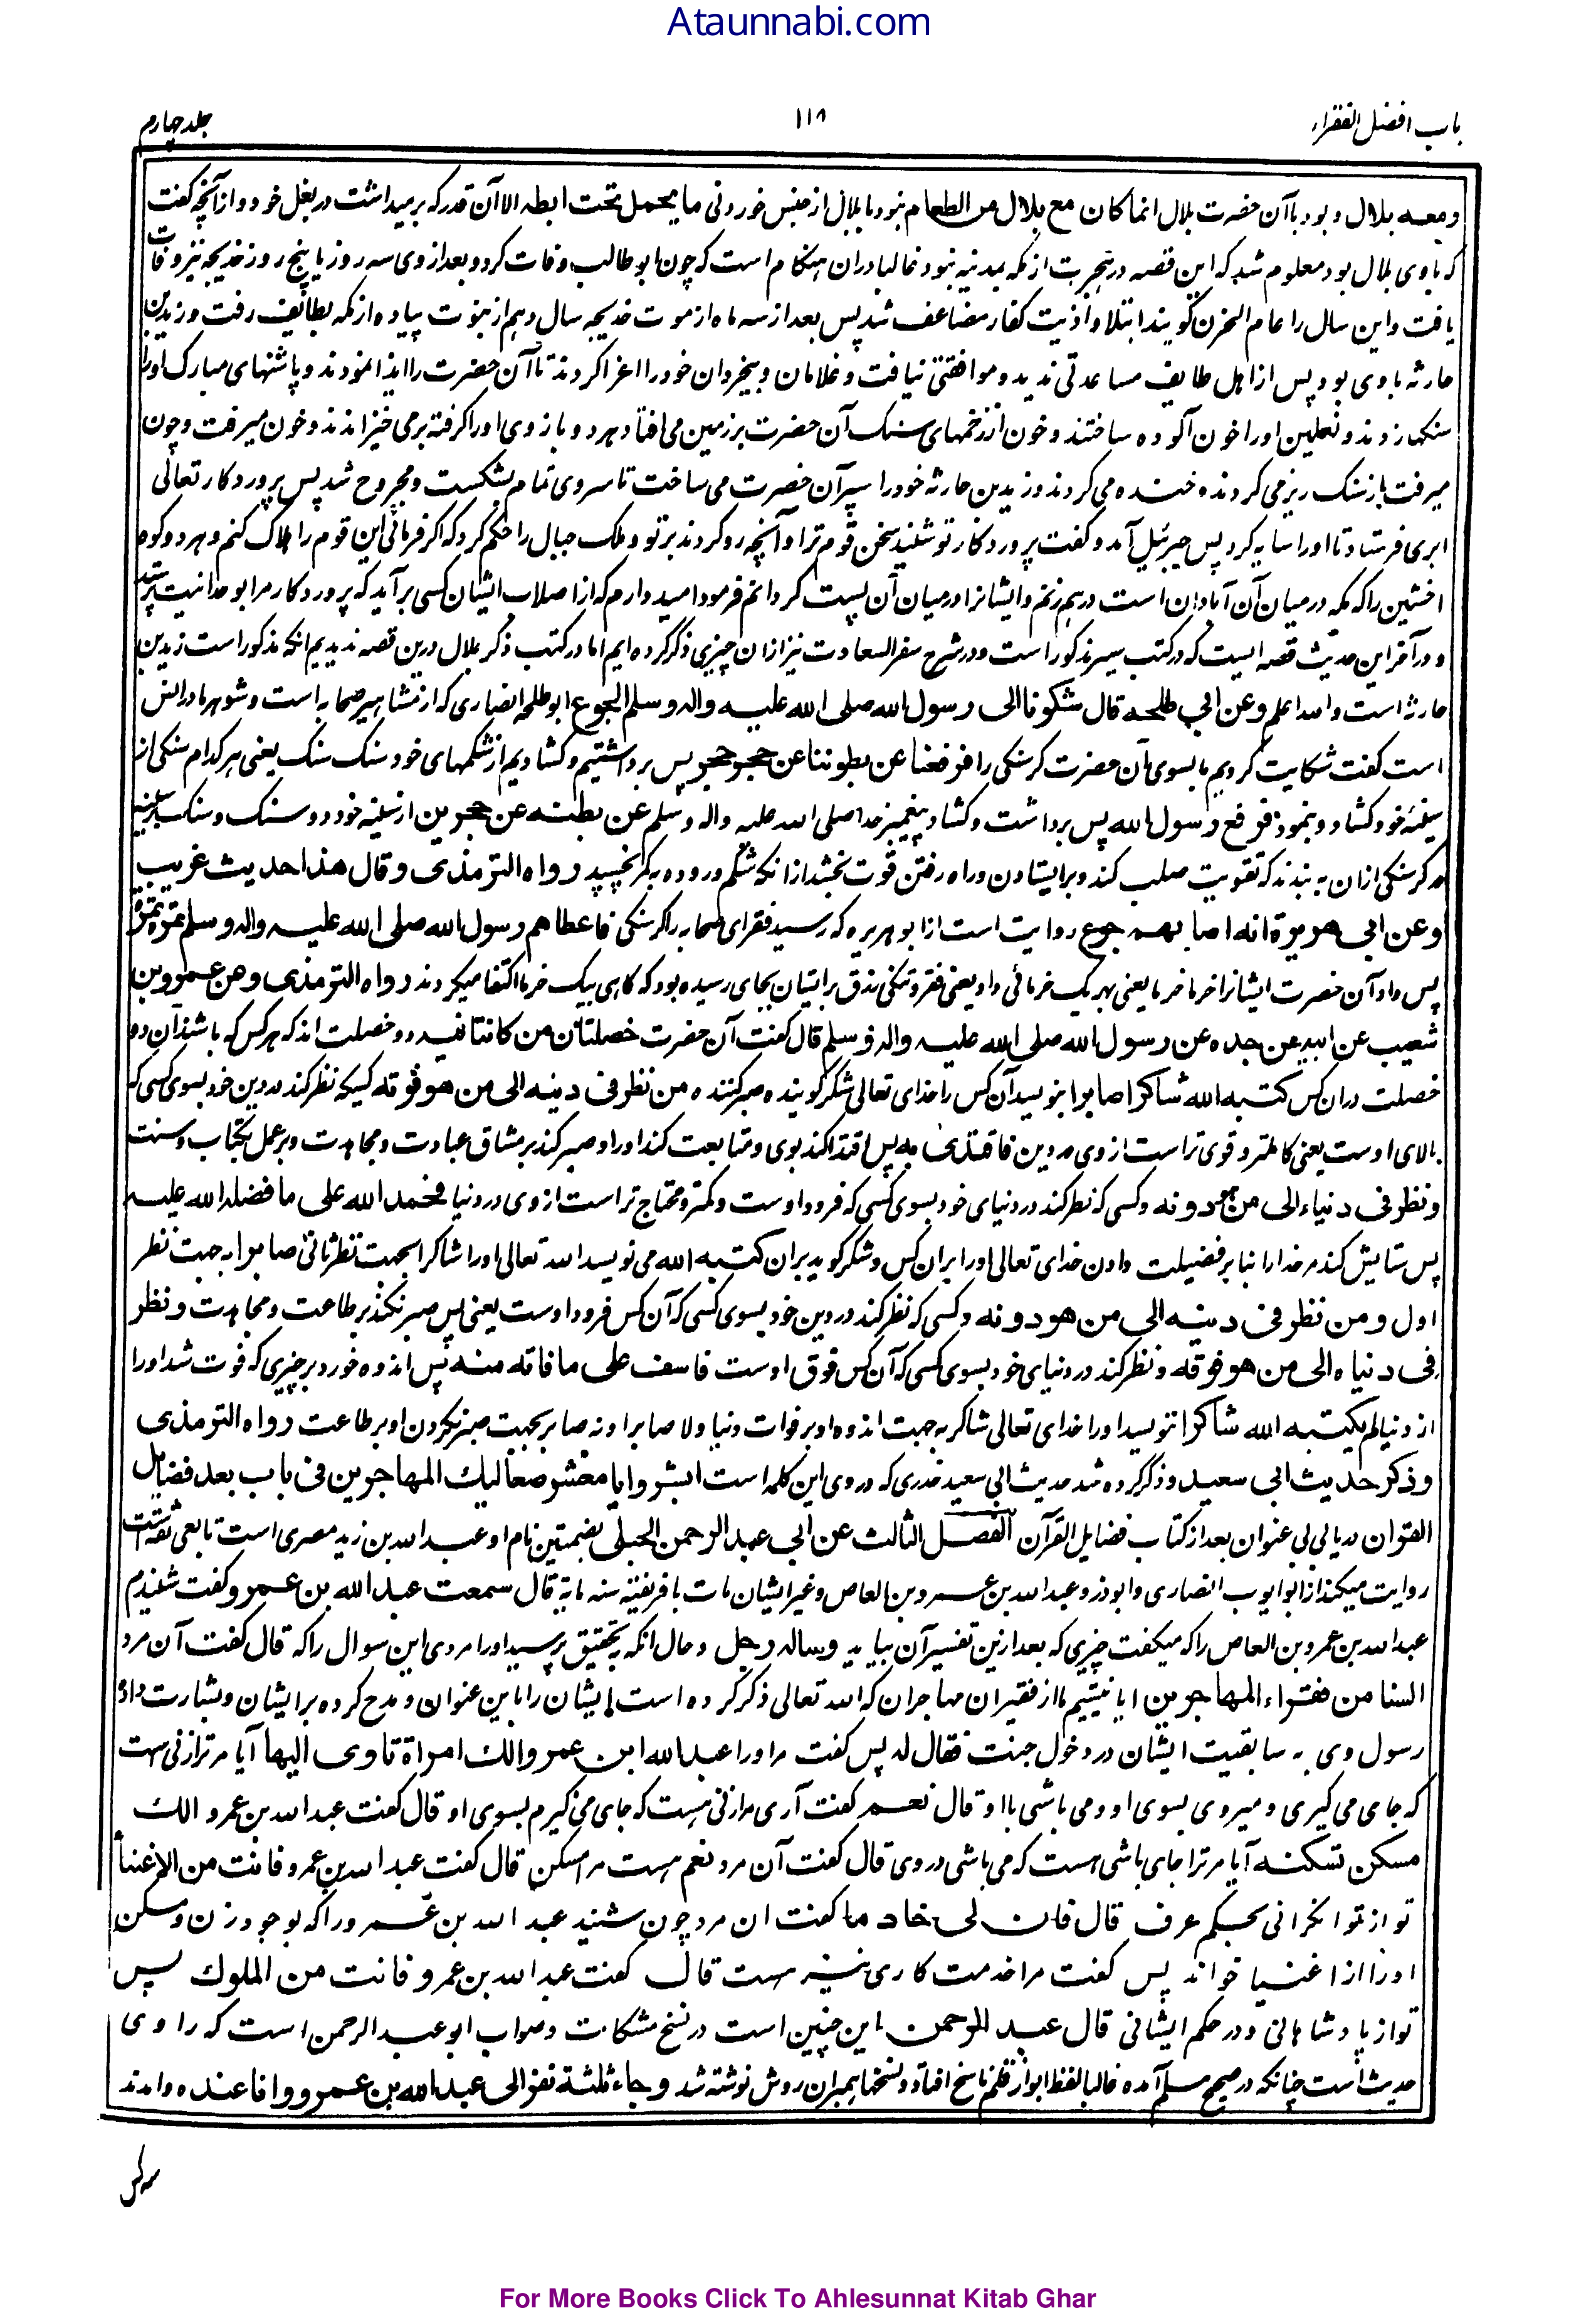 Ataunnabi.com
باب افضل الفقراء
۱۱۸
جلد چهارم
ومعه بلال و بود با آن حضرت بلال انما كان مع بلال من الطعام نبود با بلال از جنس خوردنی ما يحمل تحت ابطه الا آن قدر که بر میداشت در بغل خود و از آنچه گفت
که با وی بلال بود معلوم شد که این قصه در هجرت از مکه بمدینه نبود غالبا دران هنگام است که چون ابو طالب وفات کرد و بعد از وی سه روز یا پنج روز خدیجه نیز وفات
یافت و این سال را عام الحزن گویند ابتلا و اذیت کفار مضاعف شد پس بعد از سه ماه از موت خدیجه سال دهم از نبوت پیاده از مکه بطائف رفت و زید بن
حارثه با وی بود پس از اهل طایف مساعدتی ندید و موافقتی نیافت و غلامان و بیخردان خود را اغرا کردند تا آن حضرت را ایذا نمودند و پاشنهای مبارک او را
سنگها زدند و نعلین او را خون آلوده ساختند و خون از زخمهای سنگ آن حضرت بر زمین می افتاد هر دو بازوی او را گرفته بر می خیزانند و خون میرفت و چون
میرفت باز سنگ ریز می کردند و خنده می کردند و زید بن حارثه خود را سپر آن حضرت می ساخت تا سر وی تمام بشکست و مجروح شد پس پروردگار تعالی
ابری فرستاد تا او را سایه کرد پس جبرئیل آمد و گفت پروردگار تو شنید سخن قوم ترا و آنچه رو کردند بر تو و ملک جبال را حکم کرد که اگر فرمائی این قوم را هلاک کنم و هر دو کوه
اخشبین را که مکه در میان آن آبادان است در هم زنم و ایشانرا در میان آن پست گردانم فرمود امیدوارم که از اصلاب ایشان کسی برآید که پروردگار مرا بوحدانیت پرستد
و در آخر این حدیث قصه ایست که در کتب سیر مذکور است و در شرح سفر السعادت نیز ازان چیزی ذکر کرده ایم اما در کتب ذکر بلال درین قصه ندیدیم انکه مذکور است زید بن
حارثه است والله اعلم وعن ابی طلحه قال شکونا الی رسول الله صلی الله علیه واله وسلم الجوع ابو طلحه انصاری که از مشاهیر صحابه است و شوهر مادر انس
است گفت شکایت کردیم ما بسوی آن حضرت گرسنگی را فرفعنا عن بطوننا عن حجر حجر پس برداشتیم و کشادیم از شکمهای خود سنگ سنگ یعنی هر کدام سنگی از
سینه خود کشاد و بنمود فرفع رسول الله پس برداشت و کشاد پیغمبر خدا صلی الله علیه واله وسلم عن بطنه عن حجرین از سینه خود دو سنگ و سنگ
در گرسنگی ازان به بندند که تقویت صلب کند و بر ایستادن و راه رفتن قوت بخشد ازانکه شکم و روده به کمر بچسپد رواه الترمذی وقال هذا حديث غريب
وعن ابی هریرة انه اصابهم جوع روایت است از ابو هریره که رسید فقرای صحابه را گرسنگی فاعطاهم رسول الله صلی الله علیه واله وسلم تمرة تمرة
پس داد آن حضرت ایشانرا خرما خرما یعنی بهر یک خرمائی داد یعنی فقر و تنگی رزق بر ایشان بجای رسیده بود که گاهی بیک خرما اکتفا میکردند رواه الترمذی وعن عمرو بن
شعيب عن ابيه عن جده عن رسول الله صلى الله عليه واله وسلم قال گفت آن حضرت خصلتان من كانتا فيه دو خصلت اند که هر کس که باشند آن دو
خصلت دران کس كتبه الله شاكرا صابرا بنویسد آن کس را خدای تعالی شکر گوینده صبر کننده من نظر فی دينه الى من هو فوقه کسیکه نظر کند در دین خود بسوی کسی که
بالای اوست یعنی کاملتر و قوی تر است از وی در دین فاقتدی به پس اقتدا کند بوی و متابعت کند او را و صبر کند بر مشاق عبادت و مجاهدت و بر عمل بکتاب و سنت
ونظر فی دنیاه الى من هو دونه و کسی که نظر کند در دنیای خود بسوی کسی که فرود اوست و کمتر و محتاج تر است از وی در دنیا فحمد الله على ما فضله الله عليه
پس ستایش کند مر خدا را بنا بر فضیلت دادن خدای تعالی او را بر ان کس و شکر گوید بران كتبه الله می نویسد الله تعالی او را شاکرا بجهت نظر ثانی صابرا به جهت نظر
اول ومن نظر فی دينه الى من هو دونه و کسی که نظر کند در دین خود بسوی کسی که آن کس فرود اوست یعنی پس صبر نکند بر طاعت و مجاهدت ونظر
فی دنیاه الى من هو فوقه و نظر کند در دنیای خود بسوی کسی که آن کس فوق اوست فاسف على ما فاته منه پس اندوه خورد بر چیزی که فوت شد او را
از دنیا لم يكتبه الله شاكرا ننویسد او را خدای تعالی شاکر به جهت اندوه او بر فوات دنیا ولا صابرا و نه صابر بجهت صبر نکردن او بر طاعت رواه الترمذی
وذكر حديث ابى سعيد و ذکر کرده شد حدیث ابی سعید خدری که در وی این کلمه است ابشروا يا معشر صعاليك المهاجرين فى باب بعد فضايل
القران در بابی بی عنوان بعد از کتاب فضایل القرآن الفصل الثالث عن ابی عبد الرحمن الحبلى بضمتین نام او عبد الله بن زید مصری است تابعی ثقه است
روایت میکند از ابو ایوب انصاری و ابوذر و عبد الله بن عمرو بن العاص و غیر ایشان مات بافریقیه سنه مایة قال سمعت عبد الله بن عمرو گفت شنیدم
عبد الله بن عمرو بن العاص را که میگفت چیزی که بعد ازین تفسیر آن بیاید وساله رجل و حال انکه به تحقیق پرسید او را مردی این سوال را که قال گفت آن مرد
السنا من فقراء المهاجرين ایا نیستیم ما از فقیران مهاجران که الله تعالی ذکر کرده است ایشان را باین عنوان و مدح کرده بر ایشان و بشارت داده
رسول وی به سابقیت ایشان در دخول جنت فقال له پس گفت مر او را عبد الله ابن عمرو الك امراة تاوى اليها آیا مر ترا زنی هست
که جای می گیری و میروی بسوی او و می باشی با او قال نعم گفت آری مرا زنی هست که جای می گیرم بسوی او قال گفت عبد الله بن عمرو الك
مسكن تسكنه آیا مر ترا جای باشی هست که می باشی در وی قال گفت آن مرد نعم هست مرا مسکن قال گفت عبد الله بن عمرو فانت من الاغنياء
تو از توانگرانی بحکم عرف قال فان لى خادما گفت ان مرد چون شنید عبد الله بن عمرو را که بوجود زن و مسکن
او را از اغنیا خواند پس گفت مرا خدمت کاری نیز هست قال گفت عبد الله بن عمرو فانت من الملوك پس
تو از پادشاهانی و در حکم ایشانی قال عبد الرحمن این چنین است در نسخ مشکات وصواب ابو عبد الرحمن است که راوی
حدیث است چنانکه در صحیح مسلم آمده غالبا لفظ ابو از قلم ناسخ افتاد و نسخها بهمبران روش نوشته شد وجاء ثلثة نفر الى عبد الله بن عمرو وانا عنده و امدند
سه کس
For More Books Click To Ahlesunnat Kitab Ghar